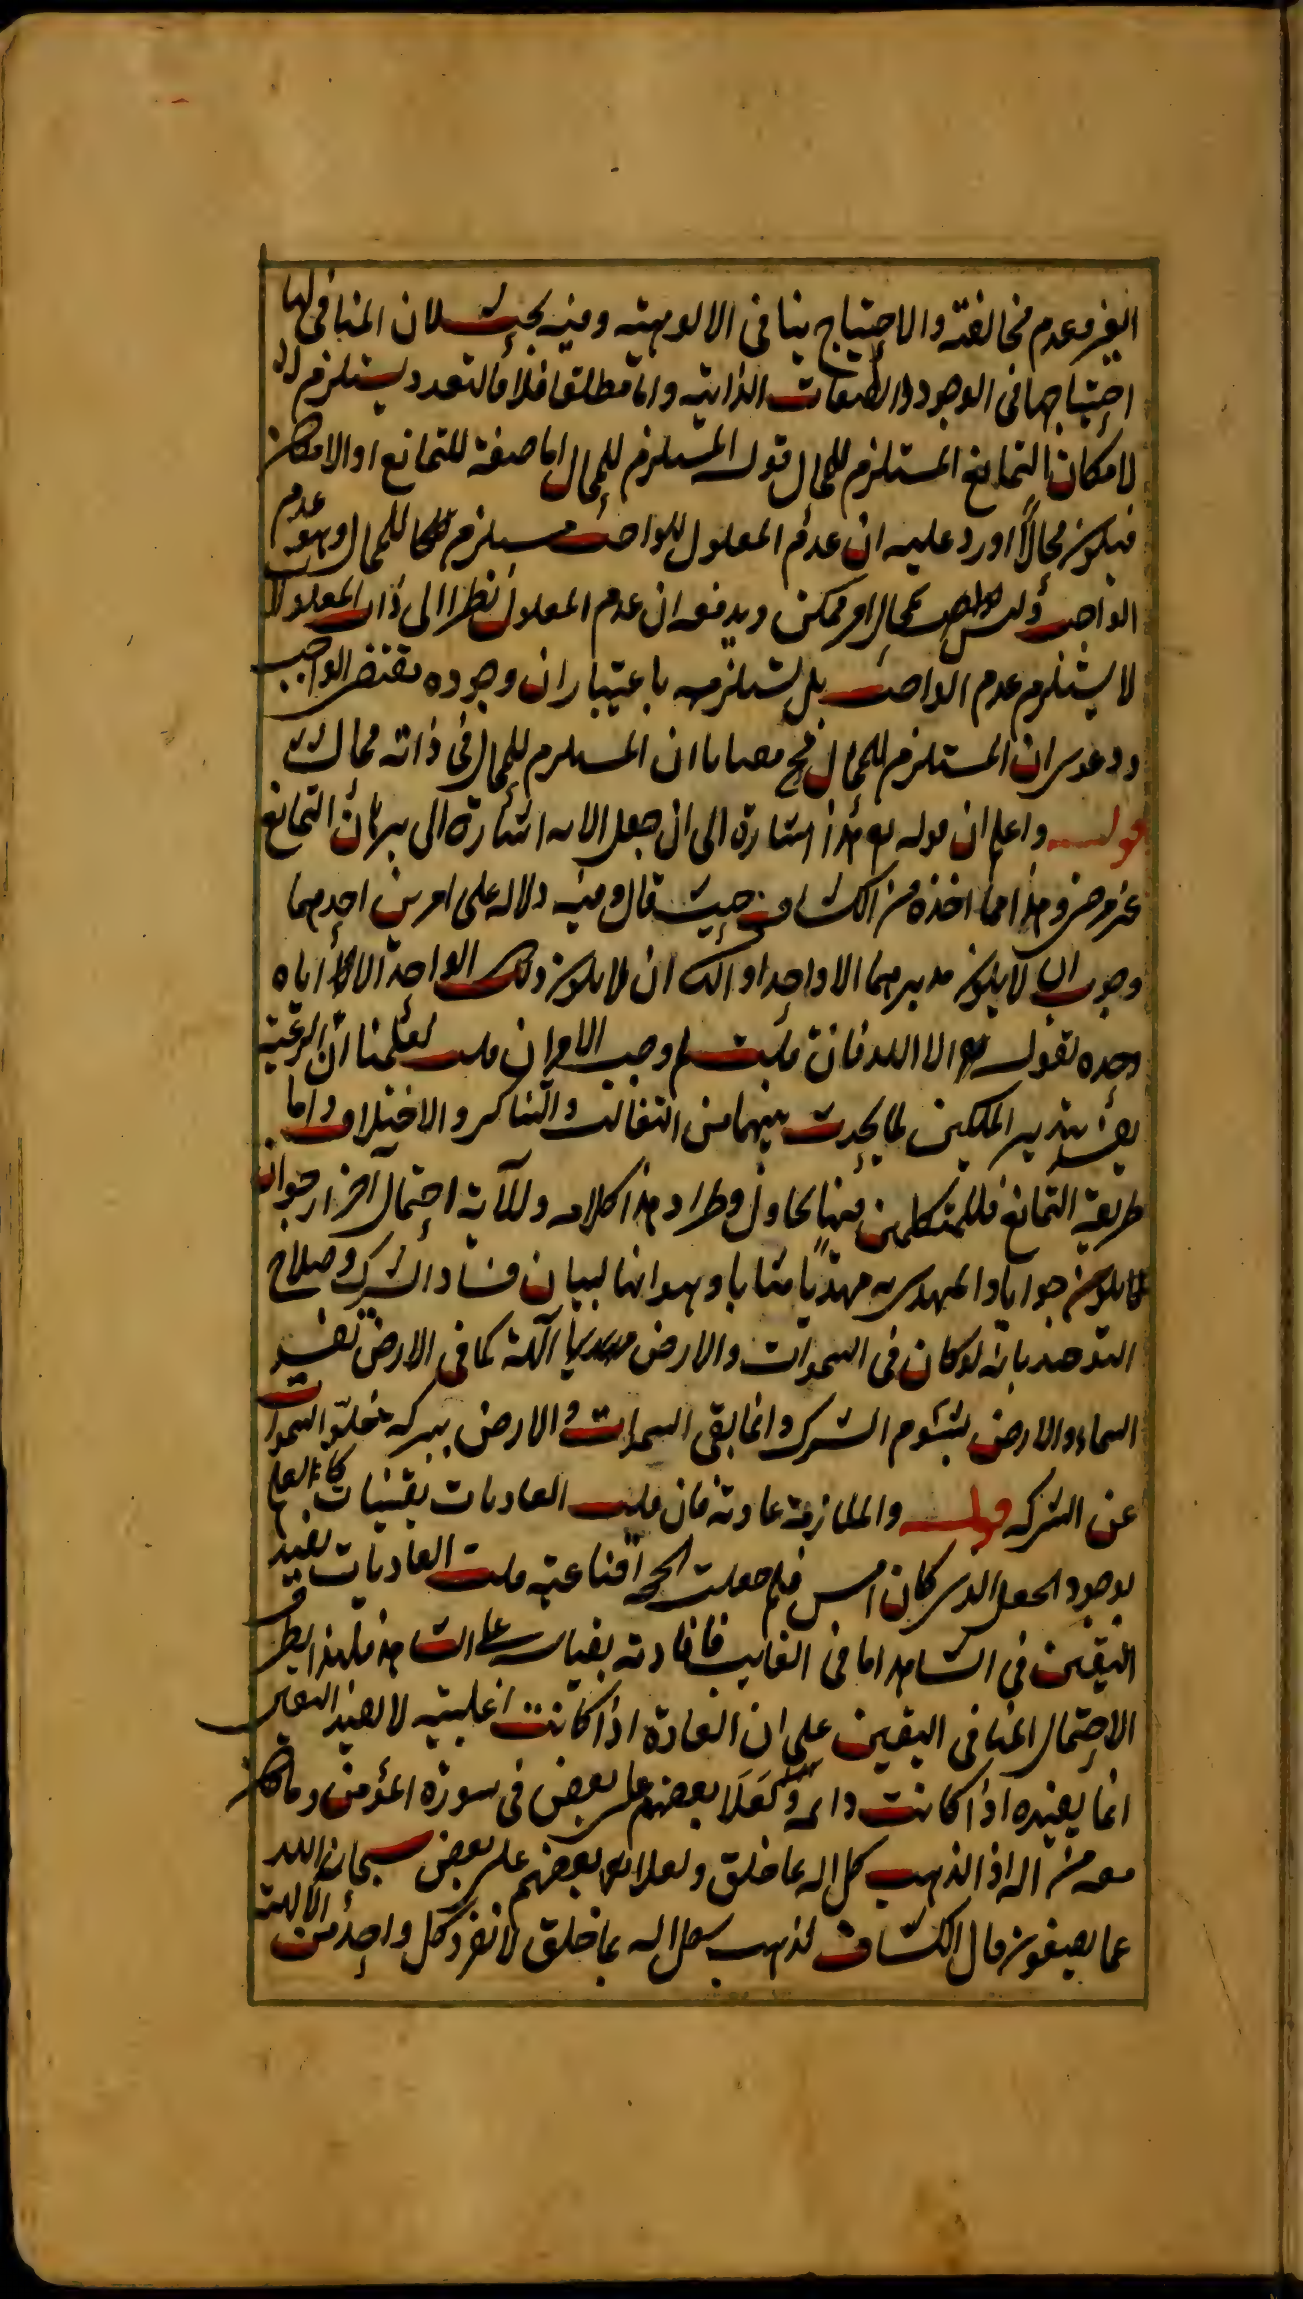 الغير وعدم مخالفته والاحتياج ينافي الالوهية وفيه بحث لان المنافي لها
احتياجها في الوجود والصفات الذاتية واما مطلقا فلا فالتعدد يستلزم
لامكان التمانع المستلزم للمحال قوله المستلزم للمحال اما صفة للتمانع او الامكان
فيكون محالا اورد عليه ان عدم المعلول للواجب مستلزم للمحال وهو عدم
الواجب وليس بمحال او ممكن ويدفعه ان عدم المعلول نظرا الى ذات المعلول
لا يستلزم عدم الواجب بل يستلزمه باعتبار ان وجوده مقتضى الواجب
ودعوى ان المستلزم للمحال ان المستلزم للمحال في ذاته محال
قوله واعلم ان قوله اشارة الى ان جعل الاية اشارة الى برهان التمانع
غير مرضي وهذا مما اخذه من الكشاف حيث قال وفيه دلالة على امرين احدهما
وجوب ان لا يكون مدبرهما الا واحدا والثاني ان لا يكون ذلك الواحد الا اياه
وحده لقوله الا الله فان قلت لم وجب الامران قلت لعلمنا ان الرعية
يفسد بتدبير الملكين لما يحدث بينهما من التغالب والتناكر والاختلاف واما
طريقة التمانع فللمتكلمين فيها تجاول وطراد هذا كلامه وللآية احتمال آخر ارجو ان
يكون صوابا والمهدي به مهديا مثابا وهو انها لبيان فساد الشرك وصلاح
التوحيد بانه لو كان في السموات والارض آلهة كما في الارض تفسد
السماء والارض بشؤم الشرك وانما بقي السموات والارض ببركة خلو السموات
عن الشركة قوله والملازمة عادية فان قلت العاديات يقينيات كالعلم
بوجود الجبل الذي كان امس فلم جعلت الحجة اقناعية قلت العاديات يفيد
اليقين في الشاهد اما في الغايب فافادته بقياس على الشاهد فلهذا يطرق
الاحتمال المنافي اليقين على ان العادة اذا كانت اغلبية لا يفيد اليقين
انما يفيده اذا كانت دائمة ولعلا بعضهم على بعض في سورة المؤمن وما كان
معه من اله اذا لذهب كل اله بما خلق ولعلا بعضهم على بعض سبحان الله
عما يصفون قال الكشاف لذهب كل اله بما خلق لانفرد كل واحد من الآلهة